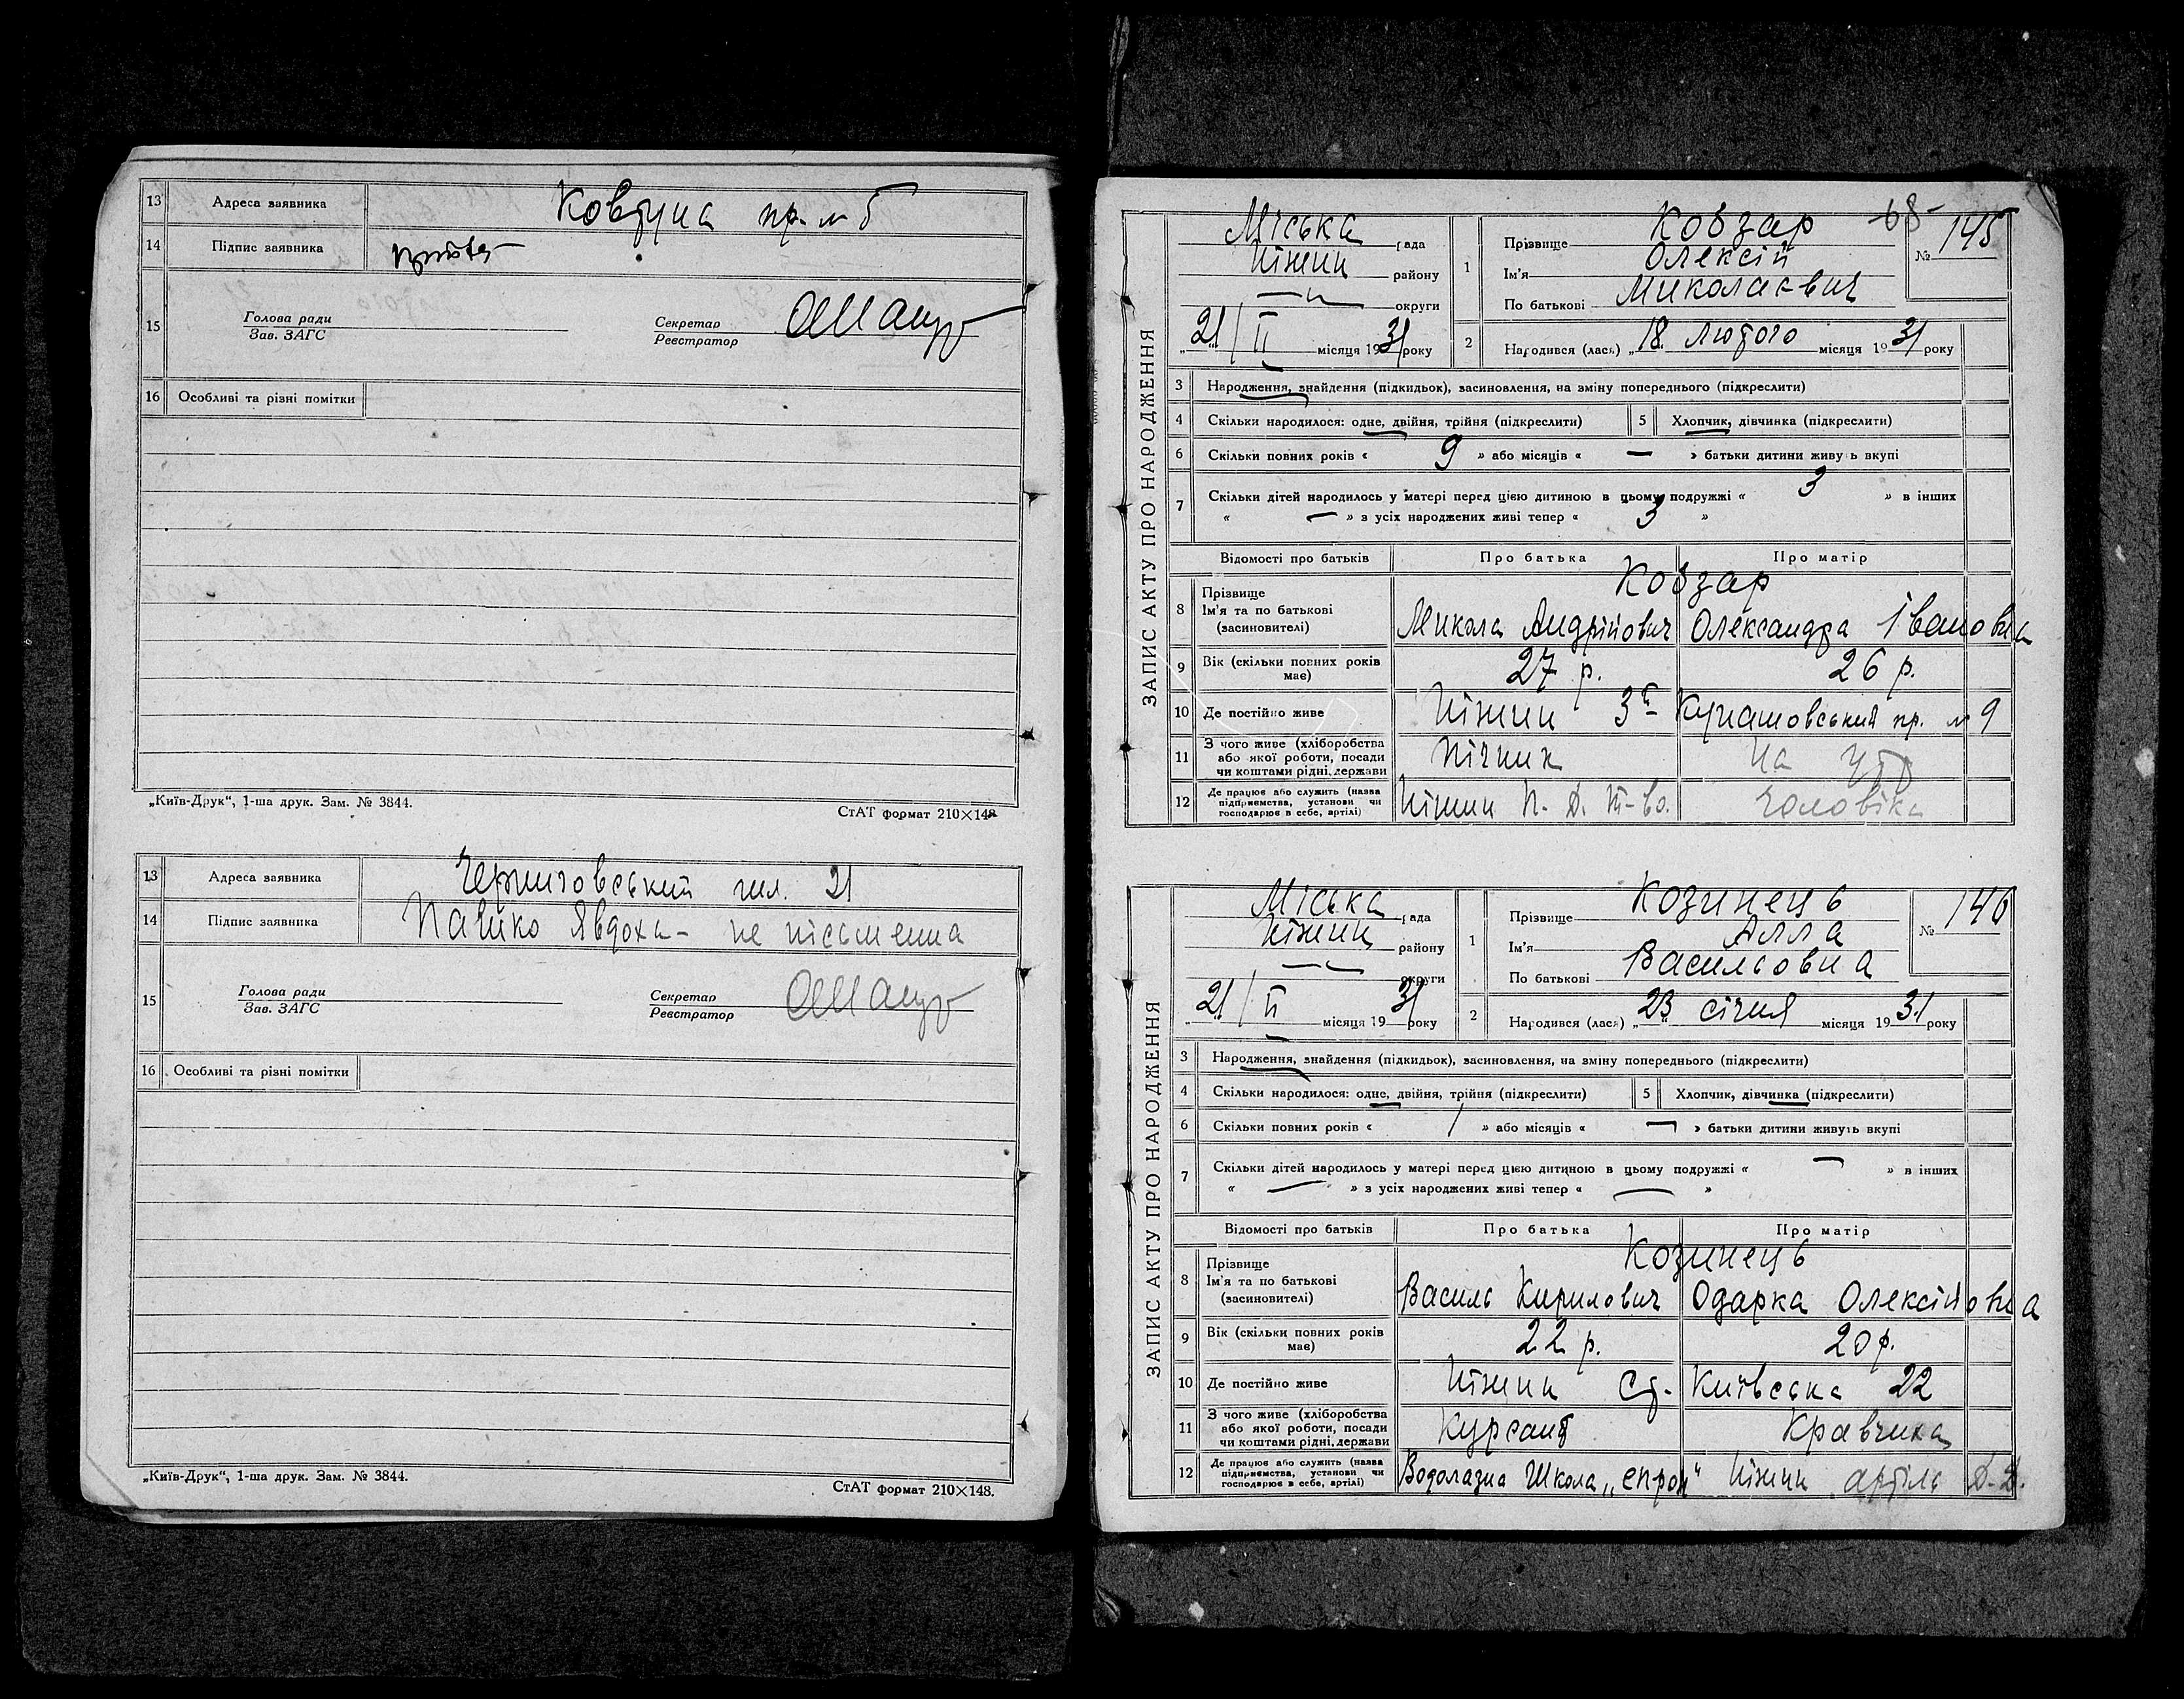 13 Адреса заявника Ковтуна пр. № 5
14 Підпис заявника
15 Голова ради
Зав. ЗАГС
Секретар
Реєстратор
16 Особливі та різні помітки
„Київ-Друк“, 1-ша друк. Зам. № 3844.
СтАТ формат 210×148
13 Адреса заявника Черниговський шл. 21
14 Підпис заявника Пашко Явдоха - не письменна
15 Голова ради
Зав. ЗАГС
Секретар
Реєстратор
16 Особливі та різні помітки
„Київ-Друк“, 1-ша друк. Зам. № 3844.
СтАТ формат 210×148.
ЗАПИС АКТУ ПРО НАРОДЖЕННЯ
Міська рада
Ніжин району
округи
21/II місяця 1931 року
68
№ 145
1 Прізвище Кобзар
Ім'я Олексій
По батькові Миколаєвич
2 Народився (лася) „18“ Лютого місяця 1931 року
3 Народження, знайдення (підкидьок), засиновлення, на зміну попереднього (підкреслити)
4 Скільки народилося: одне, двійня, трійня (підкреслити) 5 Хлопчик, дівчинка (підкреслити)
6 Скільки повних років « 9 » або місяців « — » батьки дитини живуть вкупі
7 Скільки дітей народилось у матері перед цією дитиною в цьому подружжі « 3 » в інших
« — » з усіх народжених живі тепер « 3 »
Відомості про батьків Про батька Про матір
8 Прізвище Кобзар
Ім'я та по батькові (засиновителі) Микола Андрійович Олександра Івановна
9 Вік (скільки повних років має) 27 р. 26 р.
10 Де постійно живе Ніжин 3й Кунашовський пр. № 9
11 З чого живе (хліборобства або якої роботи, посади чи коштами рідні, держави Пічник На утр
12 Де працює або служить (назва підприємства, установи чи господарює в себе, артілі) Ніжин П. Д. Т-во. чоловіка
ЗАПИС АКТУ ПРО НАРОДЖЕННЯ
Міська рада
Ніжин району
округи
21/II місяця 1931 року
№ 146
1 Прізвище Козинець
Ім'я Алла
По батькові Васильовна
2 Народився (лася) „23“ січня місяця 1931 року
3 Народження, знайдення (підкидьок), засиновлення, на зміну попереднього (підкреслити)
4 Скільки народилося: одне, двійня, трійня (підкреслити) 5 Хлопчик, дівчинка (підкреслити)
6 Скільки повних років « 1 » або місяців « — » батьки дитини живуть вкупі
7 Скільки дітей народилось у матері перед цією дитиною в цьому подружжі « — » в інших
« — » з усіх народжених живі тепер « — »
Відомості про батьків Про батька Про матір
8 Прізвище Козинець
Ім'я та по батькові (засиновителі) Василь Кирилович Одарка Олексійовна
9 Вік (скільки повних років має) 22 р. 20 р.
10 Де постійно живе Ніжин Ст. Київська 22
11 З чого живе (хліборобства або якої роботи, посади чи коштами рідні, держави Курсант Кравчиха
12 Де працює або служить (назва підприємства, установи чи господарює в себе, артілі) Водолазна Школа „Епрон“ Ніжин артіль